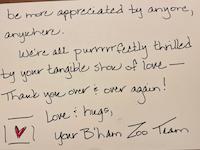 be more appreciated by anyone,
anywhere.
We're all purrrrfectly thrilled
by your tangible show of love —
Thank you over & over again!
Love & hugs,
your B'ham Zoo Team